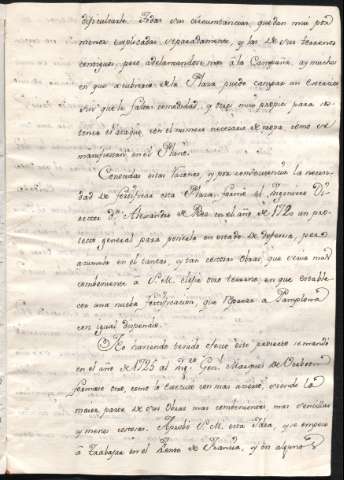 dificultarle. Todas sus circunstancias quedan mui por
menor explicadas separadamente, y las de sus terrenos
contiguos, pero adelantandose mas à la Campaña, ay muchos
en que à cubierto de la Plaza puede campar un Enemigo
sin que le falten comodidad, y otros muy propios para
el ataque, con el numero necesario de tropa como se
manifiestan en el Plano.
Conocidas estas razones, y por consequencia la necesi
dad de fortificar esta Plaza, formó el Ingeniero Di
rector Dn. Alexandro de Rez en el año de 1720 un pro
yecto general para ponerla en estado de defensa, pero
en el tanteo, y tan costosas obras, que seria mas
combeniente à S. M. elejir otro terreno en que estable
cer una nueva fortificacion, que à Pamplona
con igual dispendio.
No haviendo tenido efecto este proiecto se mandó
en el año de 1725 al Ingro. Genl. Marques de
formase otro, como lo executó con mas acierto, siendo la
maior parte de sus obras mas combenientes mas sencillas
y menos costosas. Aprobó S. M. esta Idea, y se empezó
à trabajar en el Frente de Francia, y en algunos